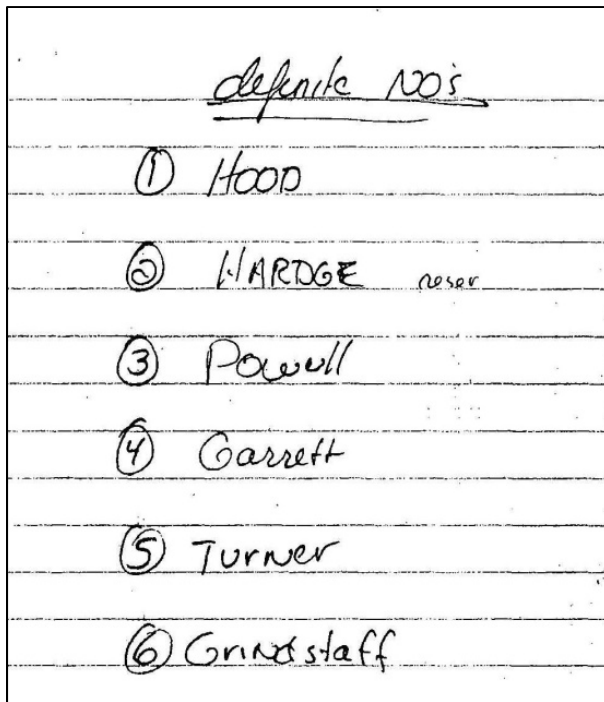 definite NO's
① HOOD
② HARDGE neser
③ Powell
④ Garrett
⑤ Turner
⑥ Grindstaff